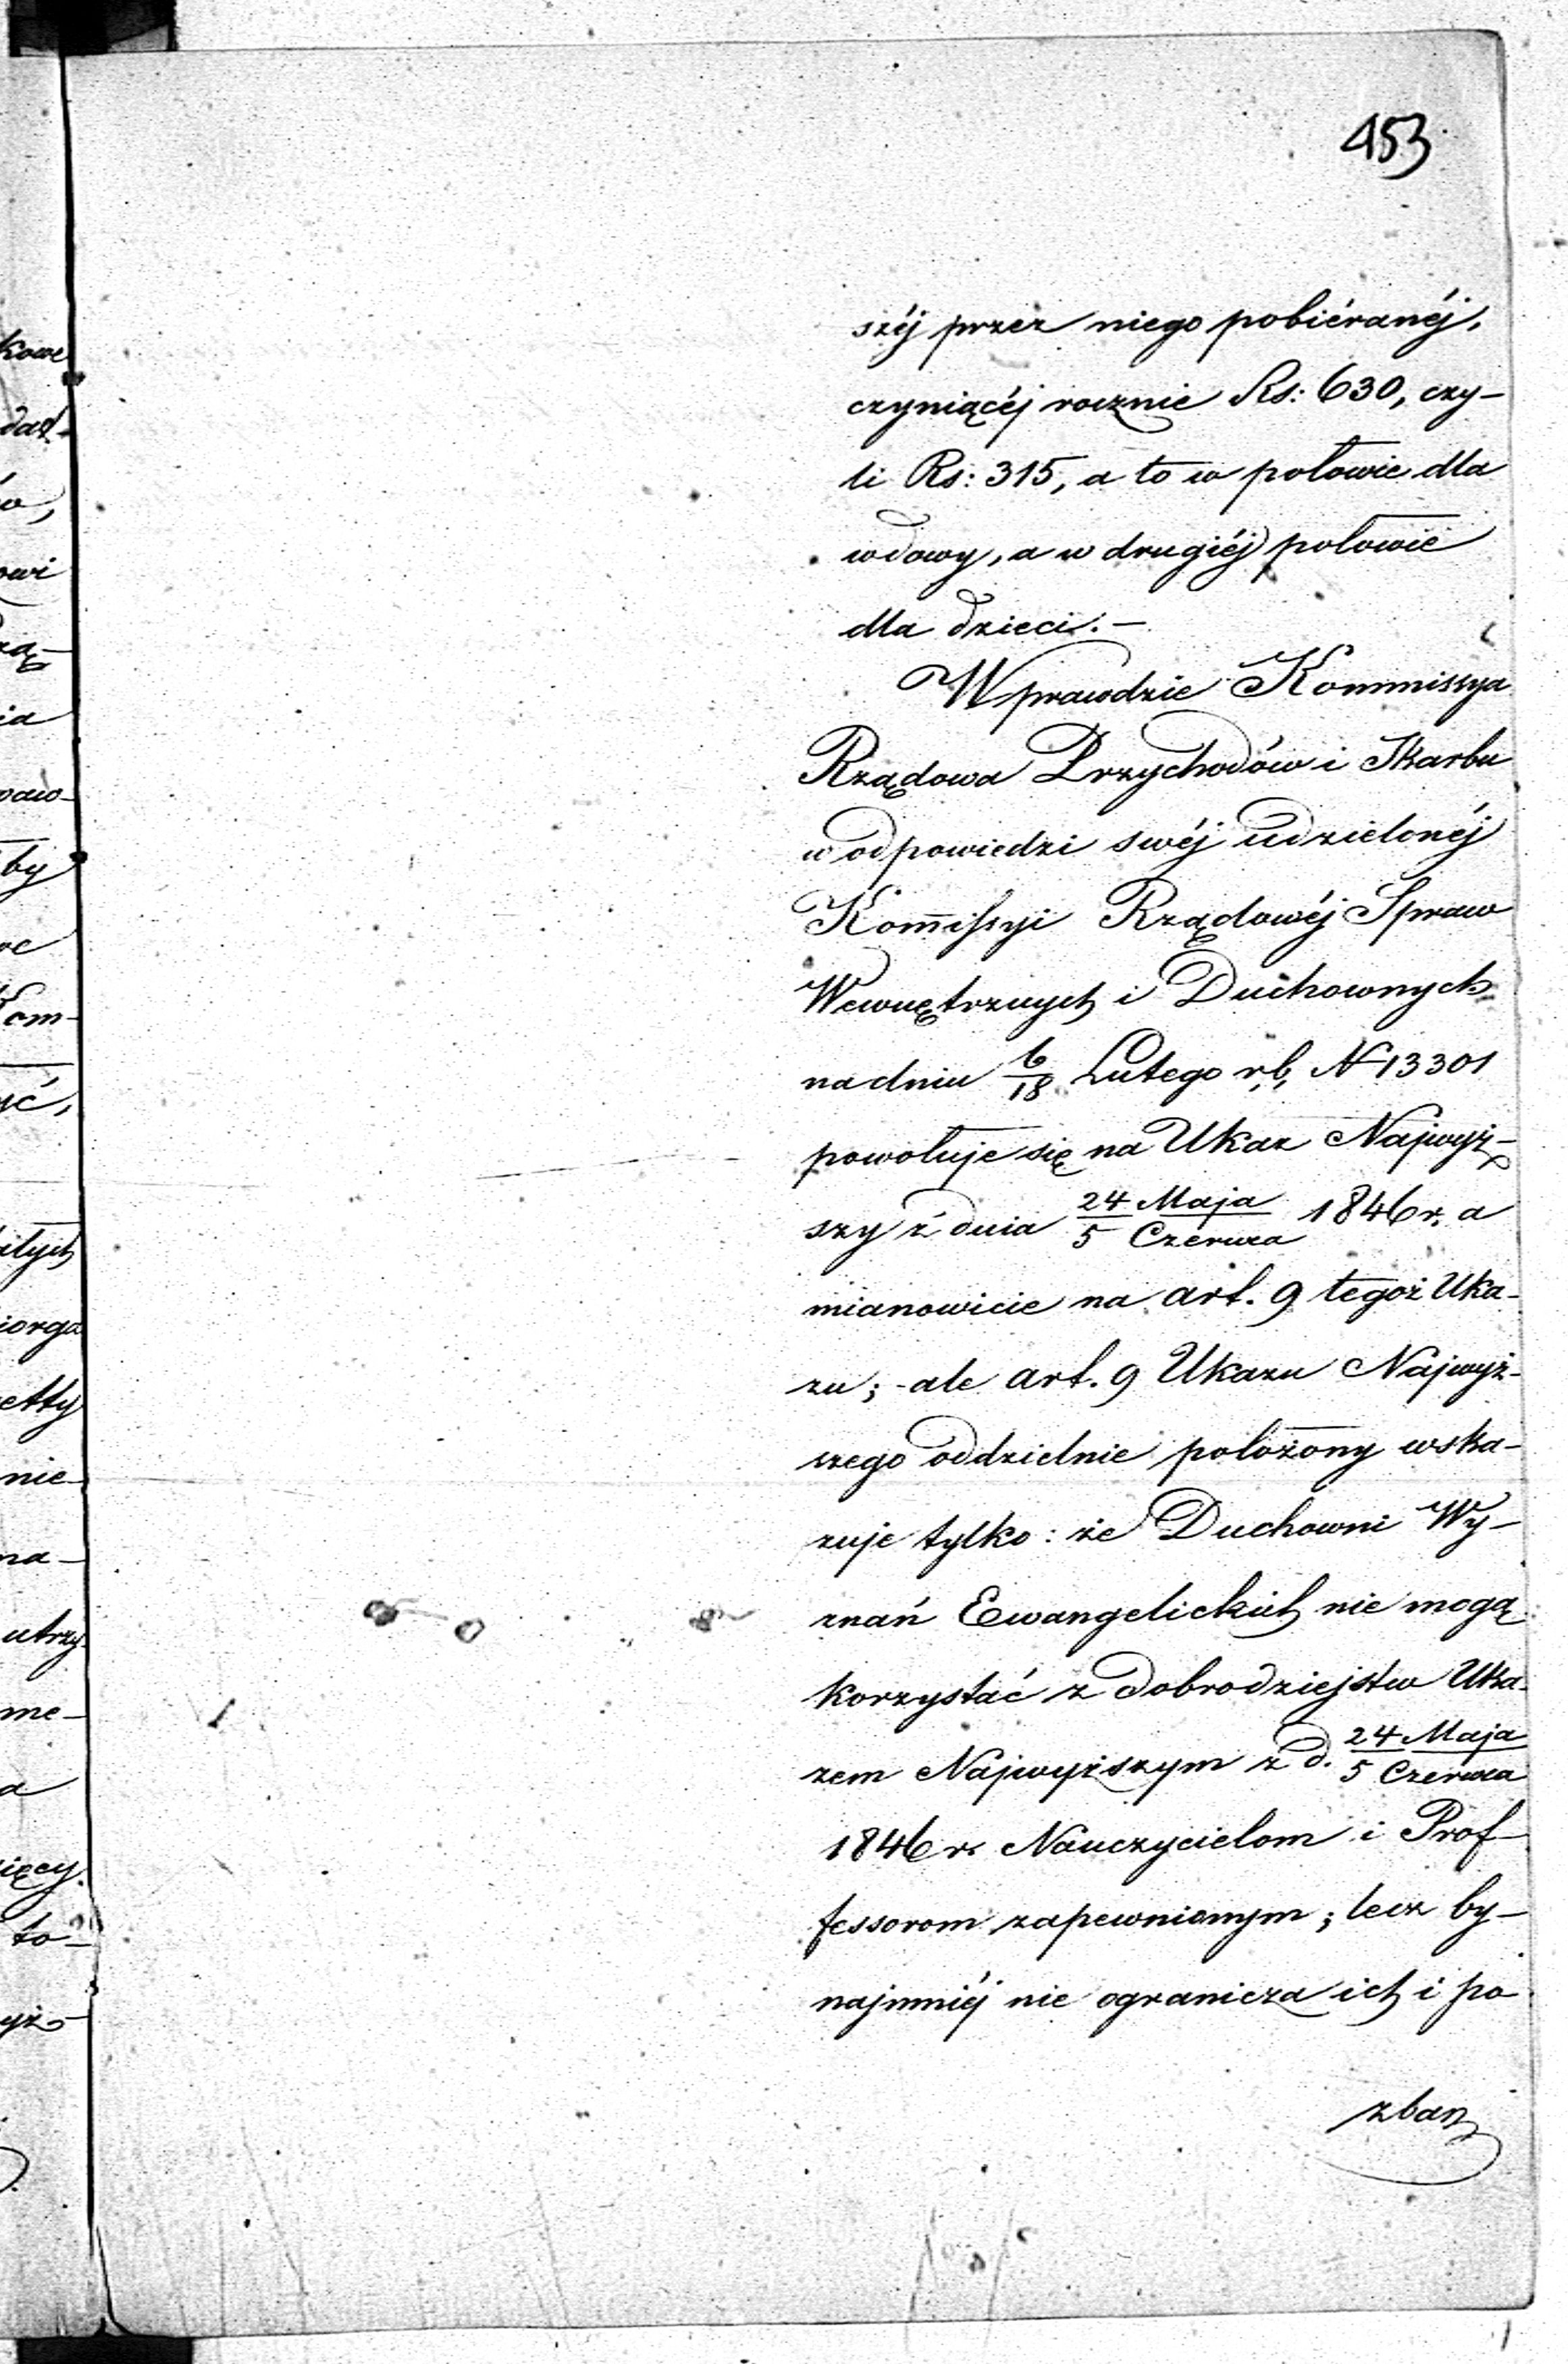 453
széj przez niego pobiéranéj,
czyniącéj rocznie Rs: 630, czy-
li Rs: 315, a to w połowie dla
wdowy, a w drugiéj połowie
dla dzieci. -
Wprawdzie Kommissya
Rządowa Przychodów i Skarbu
w odpowiedzi swéj udzielonéj
Kom̄issyi Rządowéj Spraw
Wewnętrznych i Duchownych
na dniu 6/18 Lutego r. b. N 13301
powołuje się na Ukaz Najwyż-
szy z dnia 24 Maja/5 Czerwca 1846 r. a
mianowicie na art. 9 tegoż Uka-
zu; - ale art. 9 Ukazu Najwyż-
szego oddzielnie położony wska-
zuje tylko: że Duchowni Wy-
znań Ewangelickich nie mogą
korzystać z dobrodziejstw Uka-
zem Najwyższym z d. 24 Maja/5 Czerwca
1846 r. Nauczycielom i Prof-
fessorom zapewnionym; lecz by-
najmniéj nie ogranicza ich i po
zbaw
kowe
dat-
ów,
owi
rzą-
ia
paw-
by
we
Kom-
yć,
itych
iorga
etty
nie-
na-
utrzy-
me-
a
ięcy.
to-
yż-